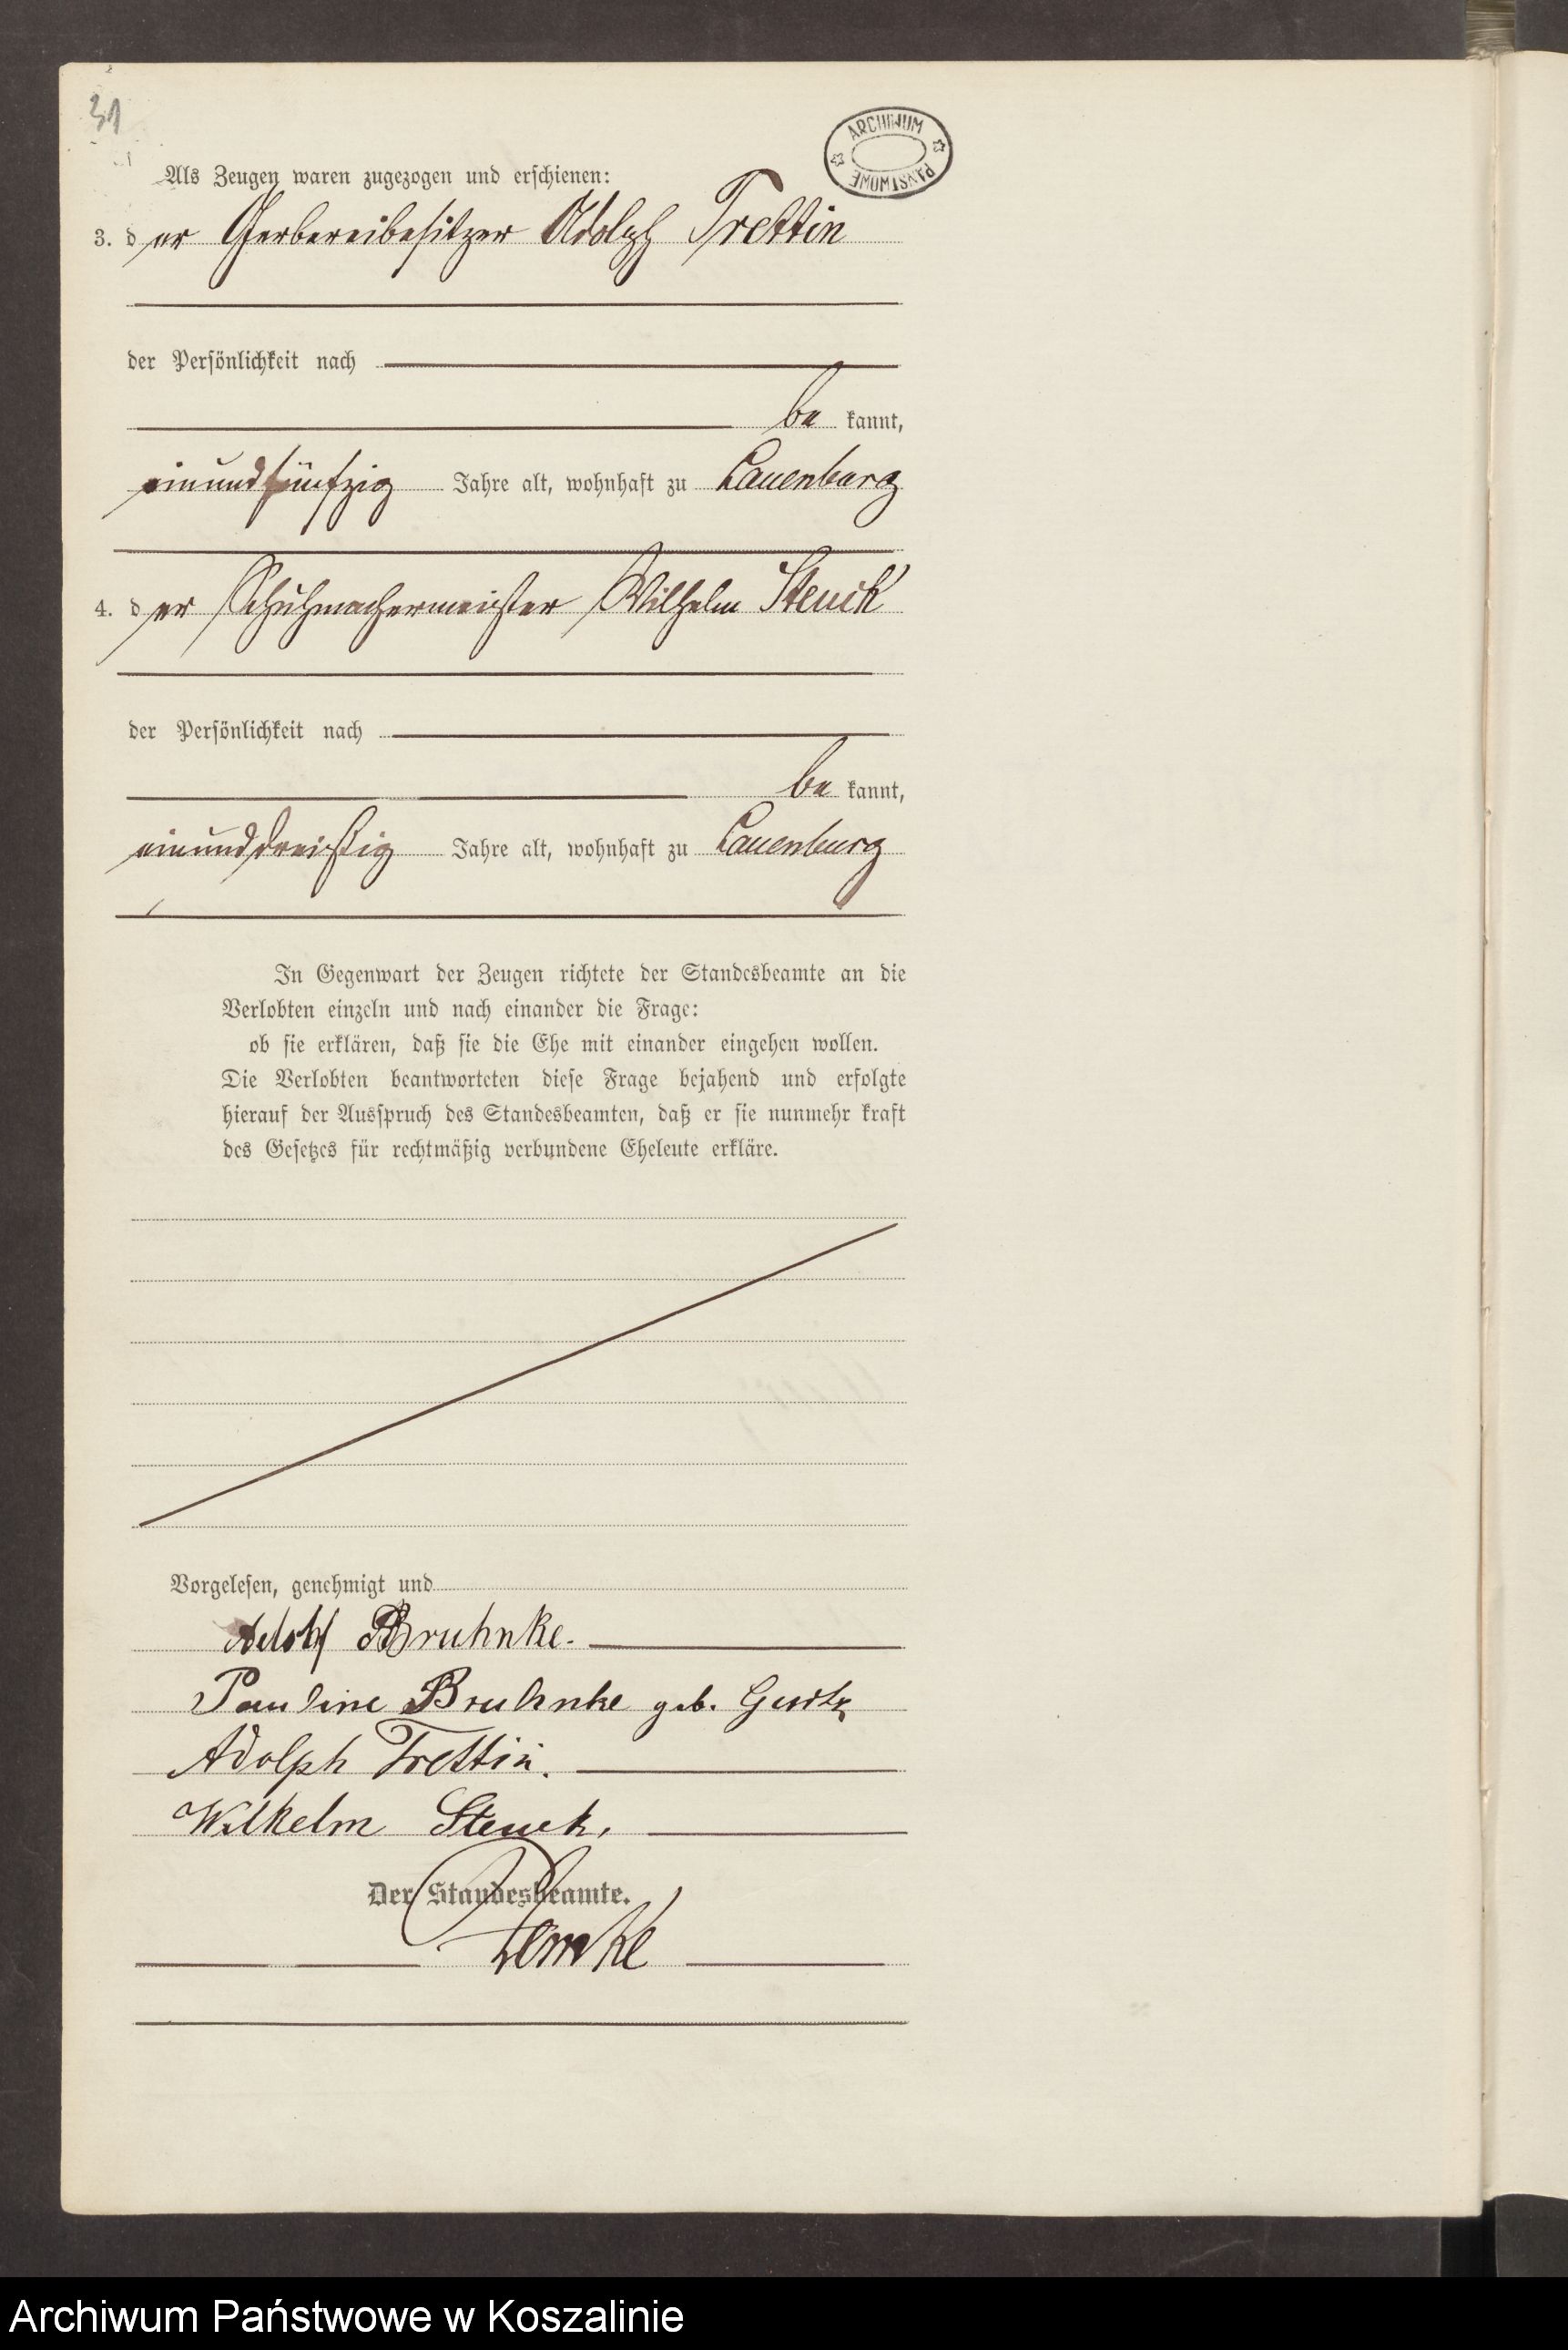 31
ARCHIWUM PAŃSTWOWE
Als Zeugen waren zugezogen und erschienen:
3. der Gerbereibesitzer Adolph Trettin
der Persönlichkeit nach
be kannt,
einundfünfzig Jahre alt, wohnhaft zu Lauenburg
4. der Schuhmachermeister Wilhelm Stenck
der Persönlichkeit nach
be kannt,
einunddreißig Jahre alt, wohnhaft zu Lauenburg
In Gegenwart der Zeugen richtete der Standesbeamte an die
Verlobten einzeln und nach einander die Frage:
ob sie erklären, daß sie die Ehe mit einander eingehen wollen.
Die Verlobten beantworteten diese Frage bejahend und erfolgte
hierauf der Ausspruch des Standesbeamten, daß er sie nunmehr kraft
des Gesetzes für rechtmäßig verbundene Eheleute erkläre.
Vorgelesen, genehmigt und
Adolf Bruhnke.
Pauline Bruhnke geb.
Adolph Trettin.
Wilhelm Stenck.
Der Standesbeamte.
Lemke
Archiwum Państwowe w Koszalinie